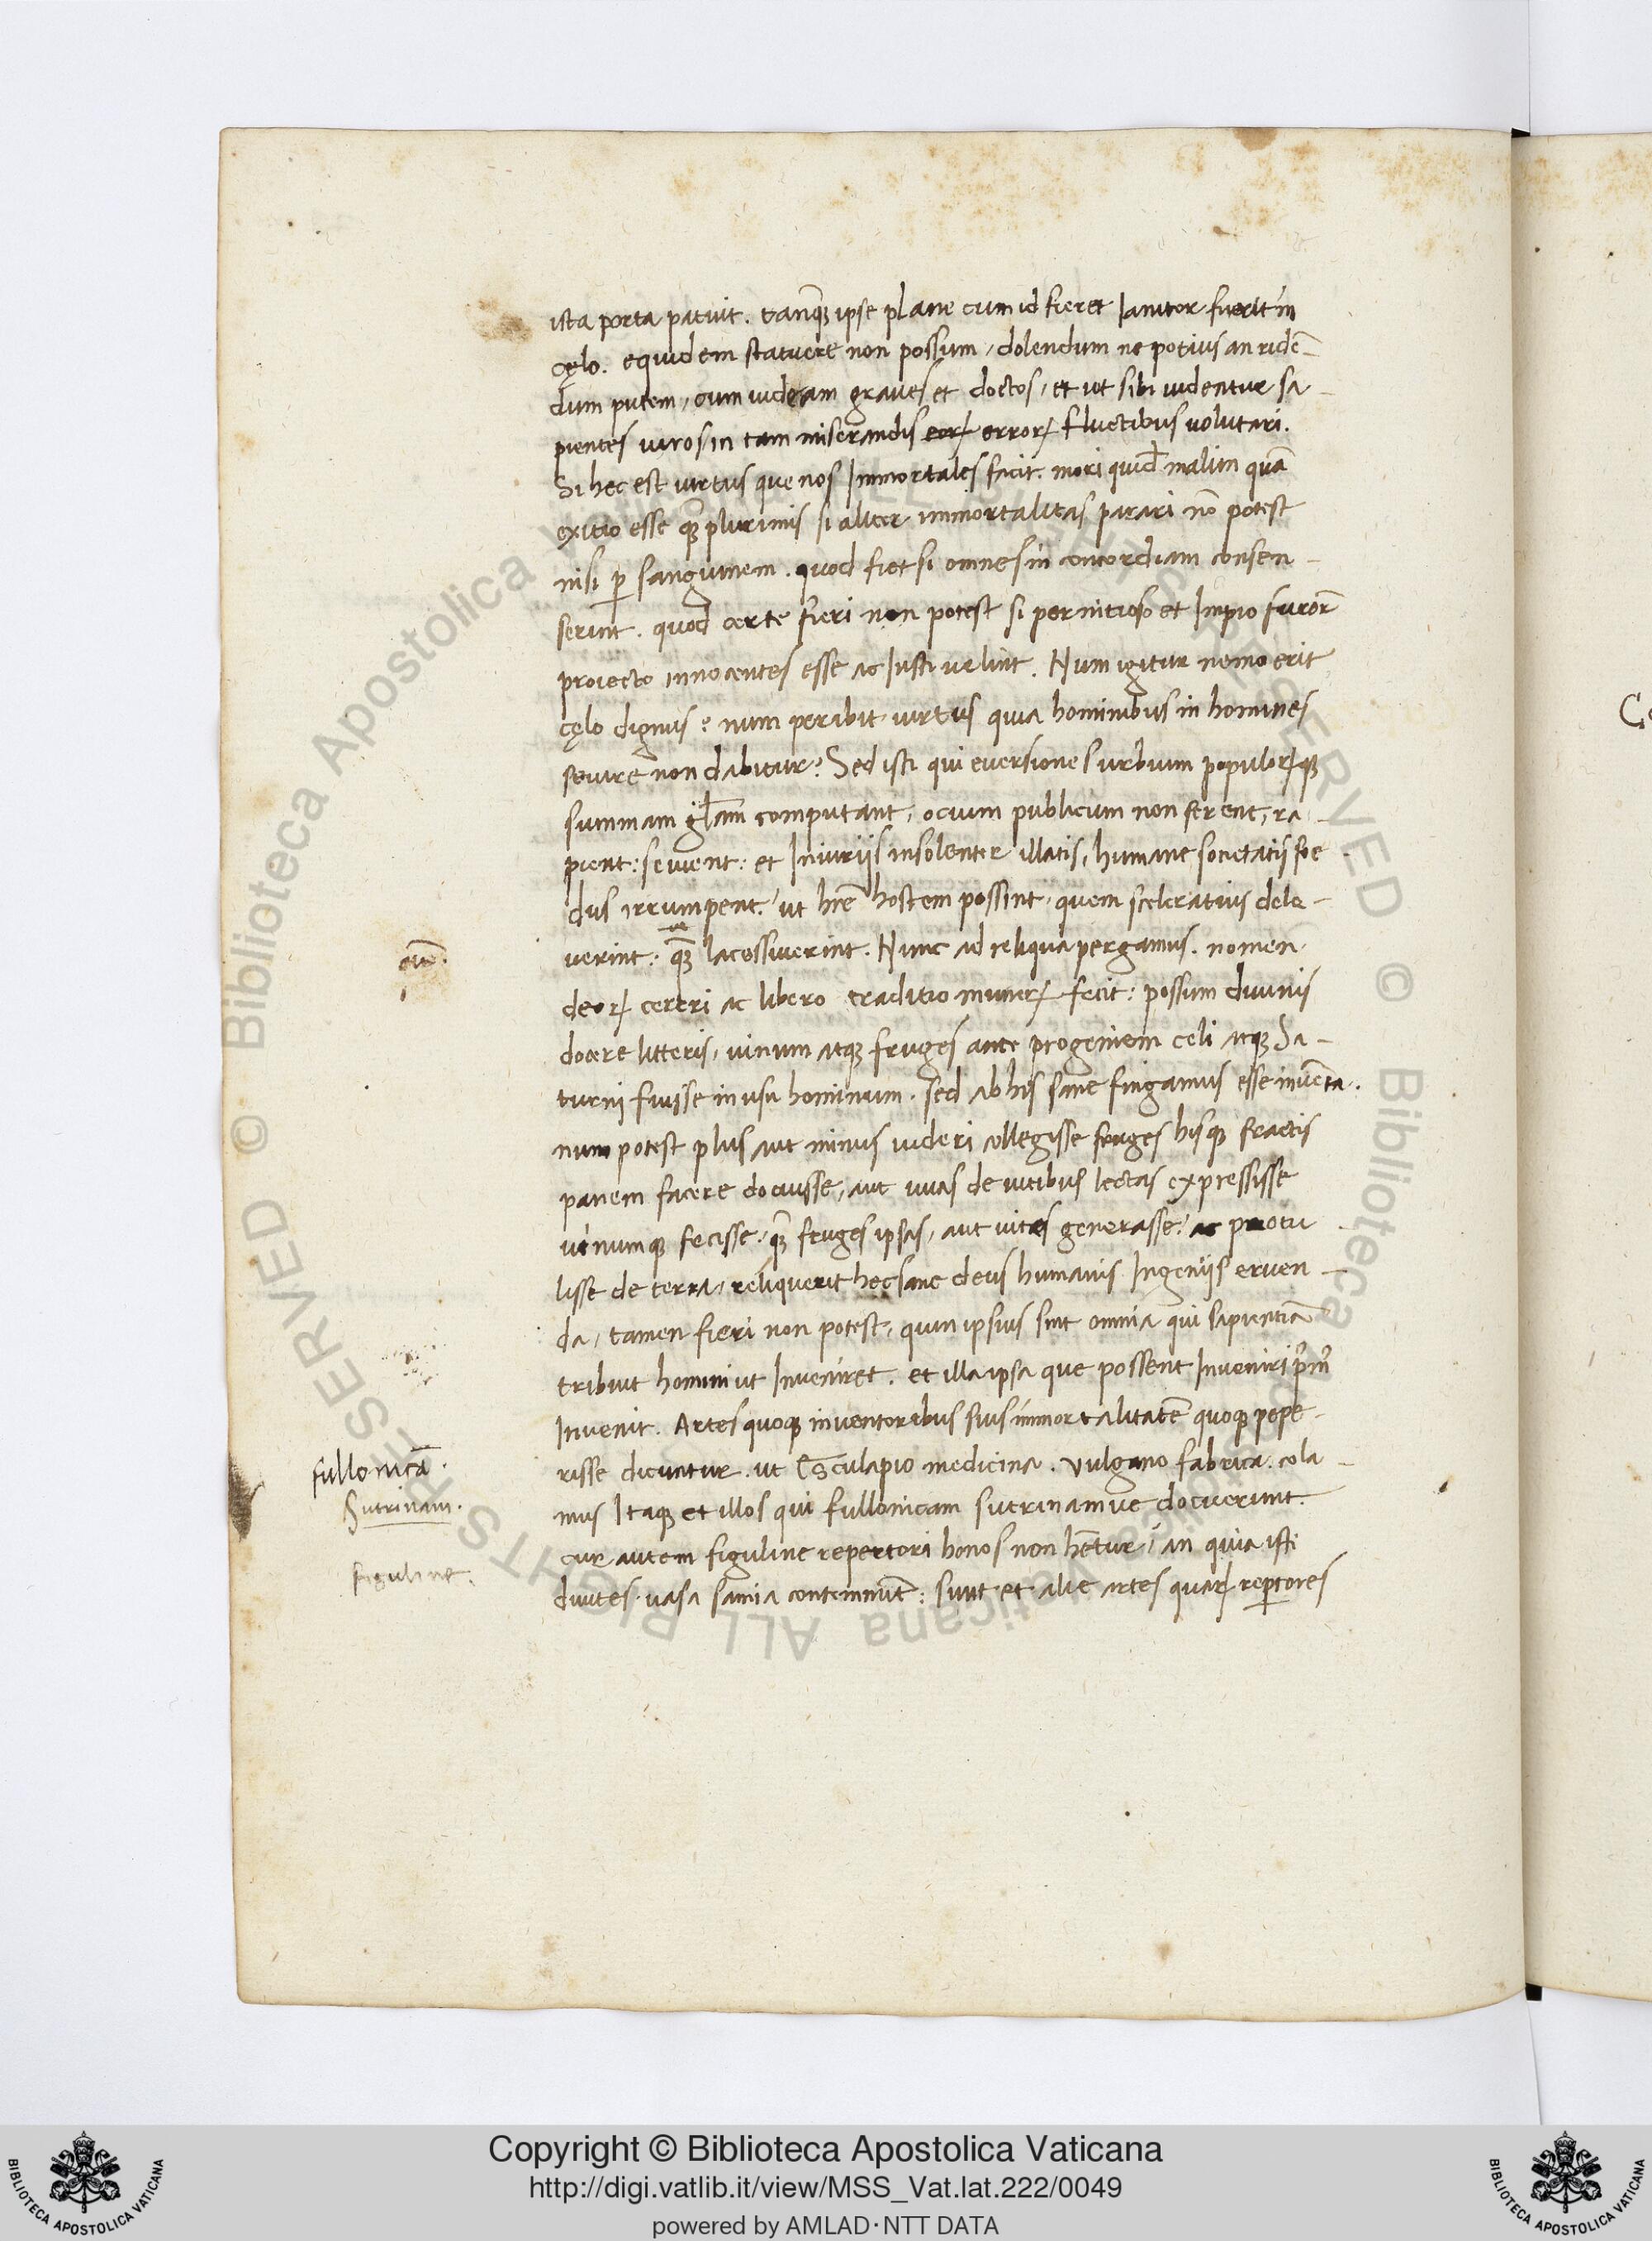 ista porta patuit. tanq̃ ipse plane cum id fieret Ianitor fuerit in
cęlo. equidem statuere non possum / dolendum ne potius an ridē-
dum putem / cum uideam graues et doctos / et ut sibi uidentur sa-
pientes uiros in tam miserandis eoꝝ erroꝝ fluctibus uolutari.
Si hec est uirtus que nos Immortales facit. mori quid̃ malim quā
exitio esse q̃ plurimis si aliter immortalitas parari nō potest
nisi ꝑ sanguinem. quod fiet si omnes in concordiam consen-
serint. quod certe fieri non potest si pernitioso et Impio furor̃
proiecto innocentes esse ac Iusti uelint. Num igitur nemo erit
cęlo dignus? num peribit uirtus quia hominibus in homines
seuire non dabitur? Sed isti qui euersiones urbium populoꝝq;
summam gl̃am computant / ocium publicum non ferent, ra-
pient: seuient: et Iniurijs insolenter illatis, humane societatis foe
dus irrumpent. / ut hr̃e hostem possint / quem sceleratius dele-
uerint: q̃ lacessiuerint. Nunc ad reliqua pergamus. nomen
qũ.
deoꝝ cereri ac libero traditio muneꝝ fecit: possum diuinis
docere litteris, uinum atq; fruges ante progeniem celi atq; Sa-
turni fuisse in usu hominum. sed ab his sane fingamus esse inuēta.
num potest plus aut minus uideri collegisse fruges hisq; fractis
panem facere docuisse, aut uuas de uitibus lectas expressisse
uinumq; fecisse. q̃ fruges ipsas, aut uites generasse / ac protu
lisse de terra, reliquerit hec sane deus humanis Ingenijs eruen-
da, tamen fieri non potest, quin ipsius sint omnia qui sapientiā
tribuit homini ut Inueniret. et illa ipsa que possent Inueniri p̃m̃
Inuenit. Artes quoq; inuentoribus suis immortalitatē quoq; pepe-
risse dicuntur. ut Esculapio medicina. uulgano fabrica. cola-
mus Itaq; et illos qui fullonicam sutrinamue docuerunt.
cur autem figuline repertori honos non hētur / an quia isti
diuites uasa samia contemnūt: sunt et alie artes quaꝝ reꝑtores
fullonicā.
Sutrinam.
figuline.
Copyright © Biblioteca Apostolica Vaticana
http://digi.vatlib.it/view/MSS_Vat.lat.222/0049
powered by AMLAD·NTT DATA
BIBLIOTECA APOSTOLICA VATICANA
BIBLIOTECA APOSTOLICA VATICANA